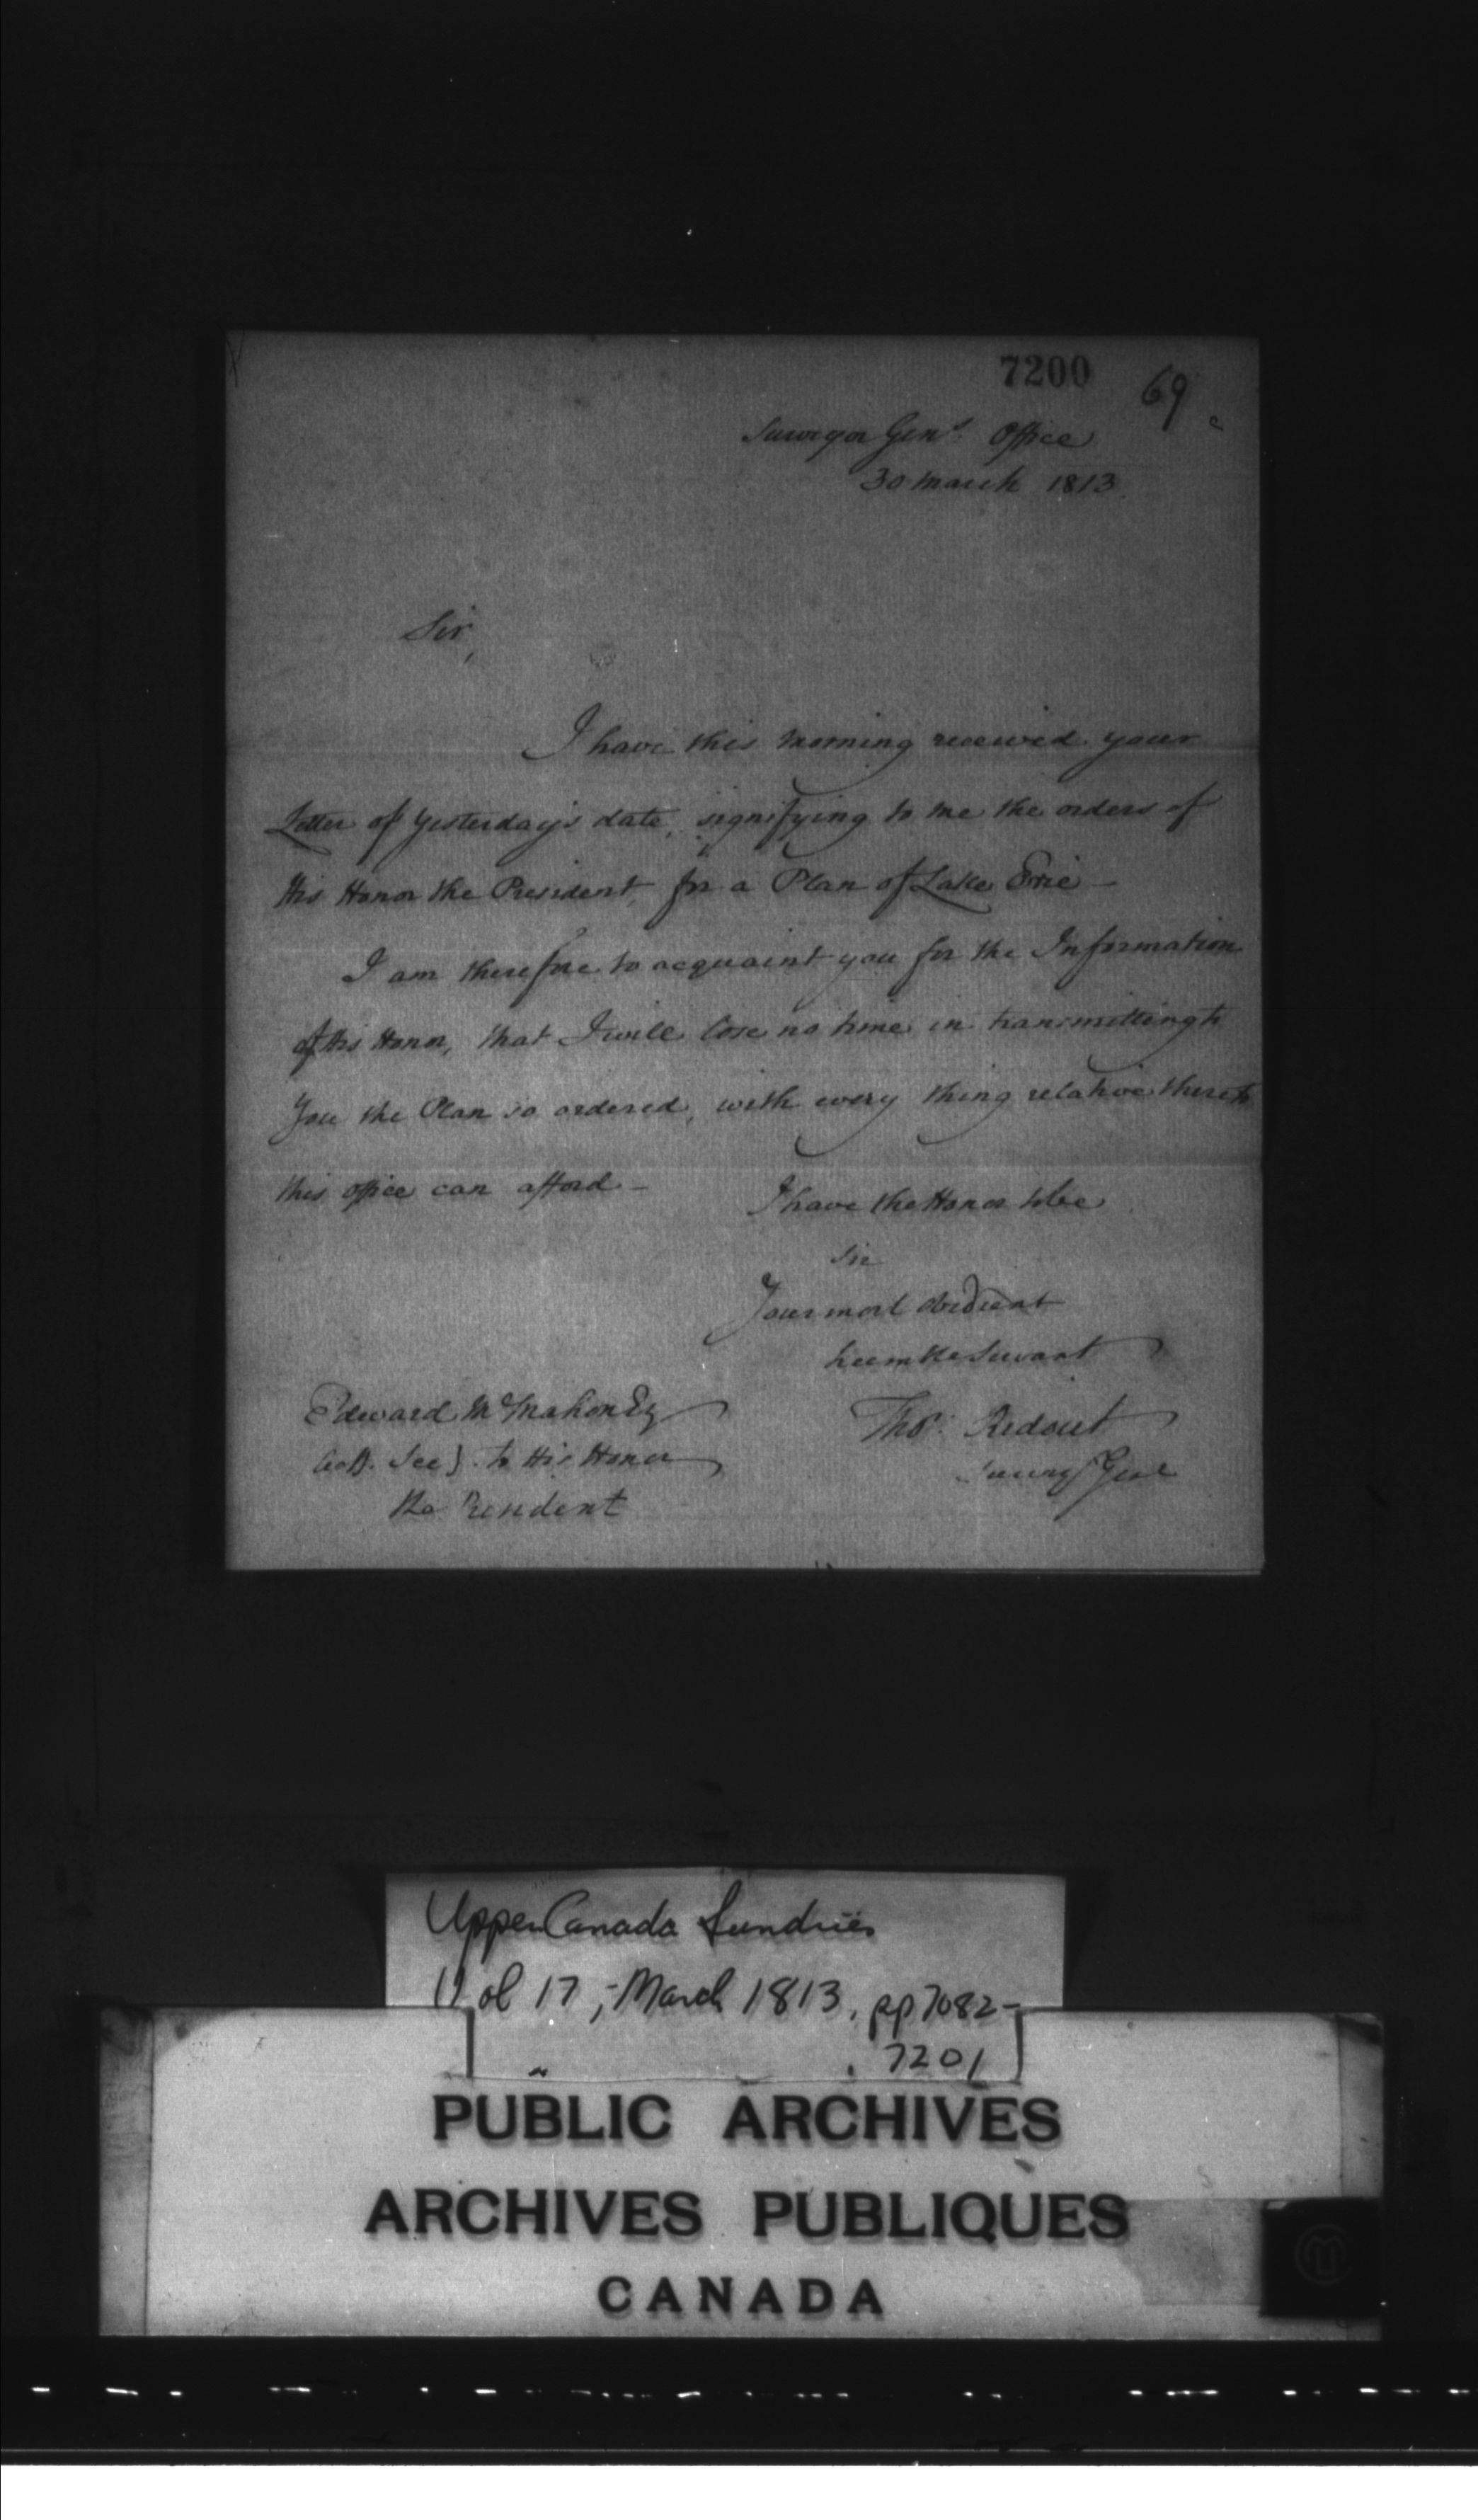 7200
69
Surveyor Genls. Office
30 march 1813.
Sir,
I have this morning received your
Letter of Yesterday's date, signifying to me the orders of
His Honor the President, for a Plan of Lake Erie —
I am therefore to acquaint you for the Information
of His Honor, that I will lose no time in transmitting to
You the Plan so ordered, with every thing relative thereto
this office can afford —
I have the Honor to be
Sir
Your most obedient
humble Servant
Edward McMahon Esq
Thos. Ridout
Secy. to His Honor
Survey Genl
the President
Upper Canada Sundries
Vol 17, - March 1813, pp 7082-
7201
PUBLIC ARCHIVES
ARCHIVES PUBLIQUES
CANADA